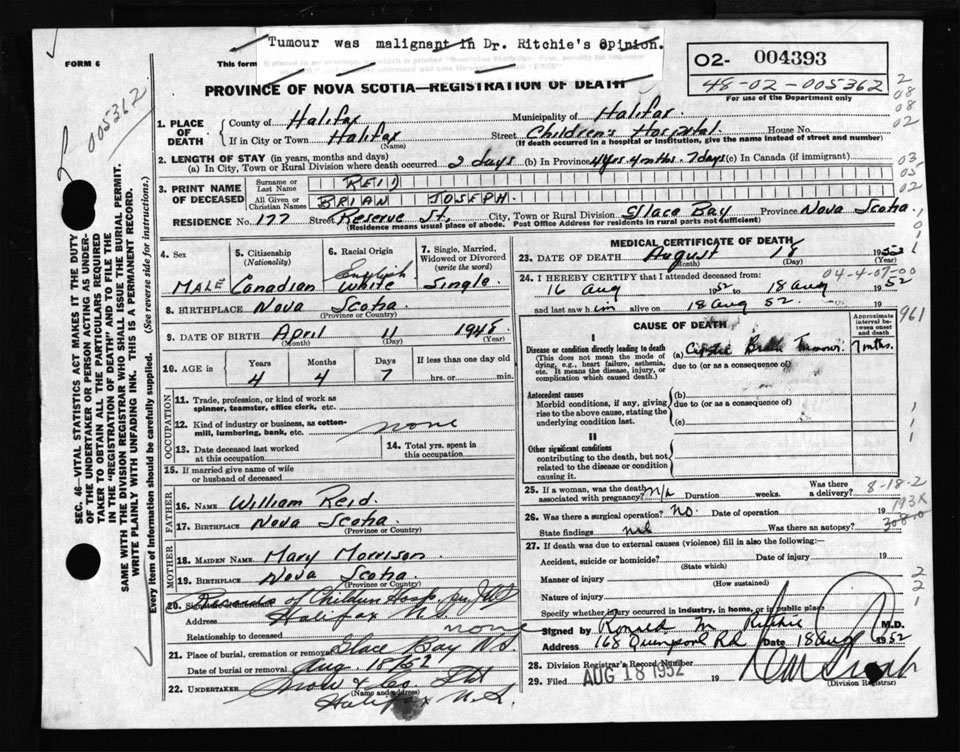 Tumour was malignant in Dr. Ritchie's Opinion.
FORM 6
This form
O2- 004393
48-02-005362
For use of the Department only
PROVINCE OF NOVA SCOTIA—REGISTRATION OF DEATH
005362
SEC. 46—VITAL STATISTICS ACT MAKES IT THE DUTY
OF THE UNDERTAKER OR PERSON ACTING AS UNDER-
TAKER TO OBTAIN ALL THE PARTICULARS REQUIRED
IN THE "REGISTRATION OF DEATH" AND TO FILE THE
SAME WITH THE DIVISION REGISTRAR WHO SHALL ISSUE THE BURIAL PERMIT.
WRITE PLAINLY WITH UNFADING INK. THIS IS A PERMANENT RECORD.
Every item of information should be carefully supplied. (See reverse side for instructions.)
1. PLACE OF DEATH
County of Halifax Municipality of Halifax.
If in City or Town Halifax Street Children's Hospital. House No.
(Name) (If death occurred in a hospital or institution, give the name instead of street and number)
2. LENGTH OF STAY (in years, months and days)
(a) In City, Town or Rural Division where death occurred 2 days (b) In Province 4 yrs. 4 mths. 7 days (c) In Canada (if immigrant)
3. PRINT NAME OF DECEASED
Surname or Last Name REID
All Given or Christian Names BRIAN JOSEPH.
RESIDENCE No. 177 Street Reserve St. City, Town or Rural Division Glace Bay Province Nova Scotia.
(Residence means usual place of abode. Post Office address for residents in rural parts not sufficient)
4. Sex
MALE
5. Citizenship
(Nationality)
Canadian
6. Racial Origin
English
White
7. Single, Married,
Widowed or Divorced
(write the word)
Single.
8. BIRTHPLACE Nova Scotia.
(Province or Country)
9. DATE OF BIRTH April 11 1948
(Month) (Day) (Year)
10. AGE in
Years Months Days If less than one day old
4 4 7 hrs. or min.
OCCUPATION
11. Trade, profession, or kind of work as
spinner, teamster, office clerk, etc.
12. Kind of industry or business, as cotten-
mill, lumbering, bank, etc. none
13. Date deceased last worked
at this occupation
14. Total yrs. spent in
this occupation
15. If married give name of wife
or husband of deceased
FATHER
16. NAME William Reid.
17. BIRTHPLACE Nova Scotia.
(Province or Country)
MOTHER
18. MAIDEN NAME Mary Morrison
19. BIRTHPLACE Nova Scotia.
(Province or Country)
20. Records of Children Hosp.
Address Halifax N.S.
Relationship to deceased none
21. Place of burial, cremation or removal Glace Bay N.S.
Date of burial or removal Aug. 18/52
22. UNDERTAKER Snow & Co
(Name and address)
Halifax N.S.
MEDICAL CERTIFICATE OF DEATH
23. DATE OF DEATH August 18 1952
(Month) (Day) (Year)
24. I HEREBY CERTIFY that I attended deceased from:
04-4-07-00
16 Aug 1952 to 18 Aug 1952
and last saw him alive on 18 Aug 52.
CAUSE OF DEATH
Approximate
interval be-
tween onset
and death
I
Disease or condition directly leading to death
(This does not mean the mode of
dying, e.g., heart failure, asthenia,
etc. It means the disease, injury, or
complication which caused death.)
(a) Cystic Brain Tumour. 7 mths.
due to (or as a consequence of)
Antecedent causes
Morbid conditions, if any, giving
rise to the above cause, stating the
underlying condition last.
(b)
due to (or as a consequence of)
(c)
II
Other significant conditions
contributing to the death, but not
related to the disease or condition
causing it.
25. If a woman, was the death
associated with pregnancy? N/A Duration weeks. Was there
a delivery?
8-18-2
193X
26. Was there a surgical operation? no. Date of operation 19
State findings nil Was there an autopsy?
27. If death was due to external causes (violence) fill in also the following:—
Accident, suicide or homicide? Date of injury 19
(State which)
Manner of injury
(How sustained)
Nature of injury
Specify whether injury occurred in industry, in home, or in public place
Signed by Ronald M Ritchie M.D.
Address 168 Quinpool Rd Date 18 Aug 1952
28. Division Registrar's Record Number
29. Filed AUG 18 1952 19
(Division Registrar)
2
08
08
02
03
02
961
1
1
1
2
2
1